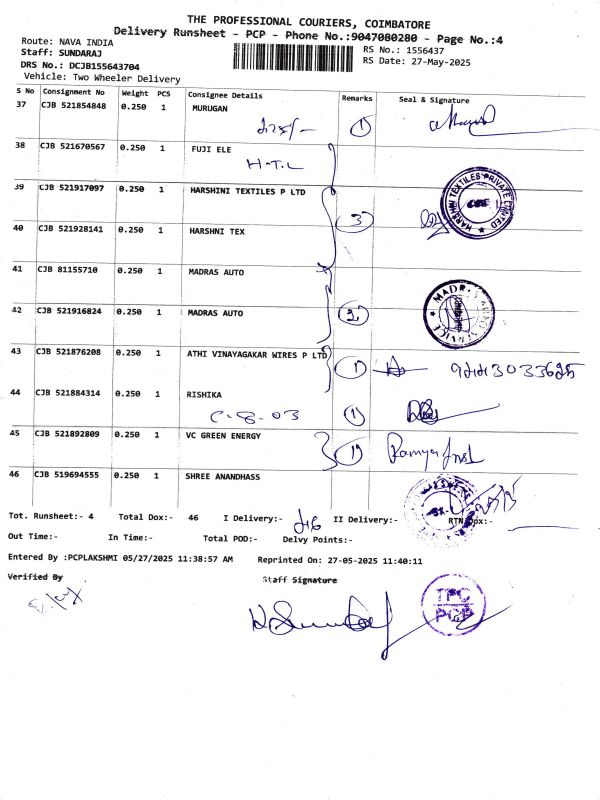 THE PROFESSIONAL COURIERS, COIMBATORE
Delivery Runsheet - PCP - Phone No.:9047080280 - Page No.:4
Route: NAVA INDIA
RS No.: 1556437
Staff: SUNDARAJ
RS Date: 27-May-2025
DRS No.: DCJB155643704
Vehicle: Two Wheeler Delivery
S No Consignment No Weight PCS Consignee Details Remarks Seal & Signature
37 CJB 521854848 0.250 1 MURUGAN
1
38 CJB 521670567 0.250 1 FUJI ELE
H.T.L
39 CJB 521917097 0.250 1 HARSHINI TEXTILES P LTD
HARSHNI TEXTILES PRIVATE LIMITED
3
40 CJB 521928141 0.250 1 HARSHNI TEX
41 CJB 81155710 0.250 1 MADRAS AUTO
42 CJB 521916824 0.250 1 MADRAS AUTO
2
43 CJB 521876208 0.250 1 ATHI VINAYAGAKAR WIRES P LTD
1
44 CJB 521884314 0.250 1 RISHIKA
C.8.03 1
45 CJB 521892809 0.250 1 VC GREEN ENERGY
1 Ramya
46 CJB 519694555 0.250 1 SHREE ANANDHASS
Tot. Runsheet:- 4 Total Dox:- 46 I Delivery:- 46 II Delivery:- RTN Dox:-
Out Time:- In Time:- Total POD:- Delvy Points:-
Entered By :PCPLAKSHMI 05/27/2025 11:38:57 AM Reprinted On: 27-05-2025 11:40:11
Verified By Staff Signature
TPC
PCP